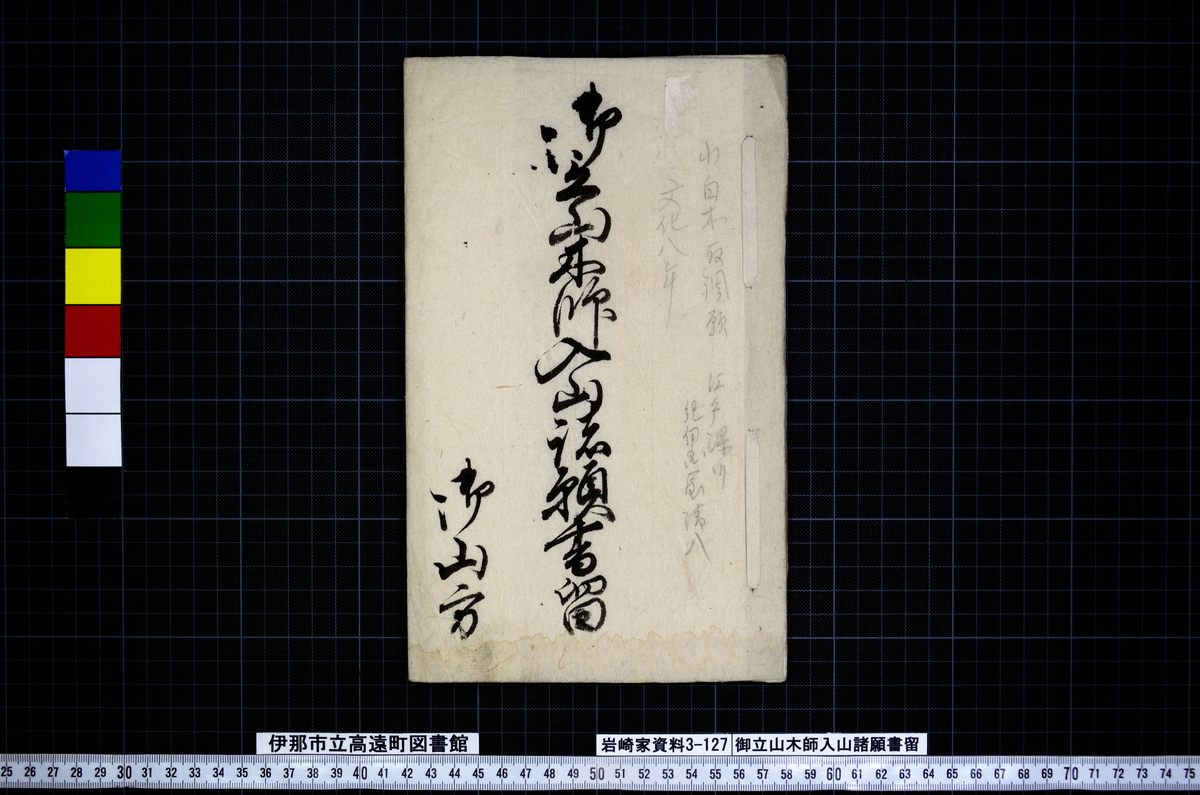 小白木取調願 江戸深川
紀伊国屋清八
文化八年
御立山木師入山諸願書留
御山方
伊那市立高遠町図書館
岩崎家資料3-127
御立山木師入山諸願書留
25 26 27 28 29 30 31 32 33 34 35 36 37 38 39 40 41 42 43 44 45 46 47 48 49 50 51 52 53 54 55 56 57 58 59 60 61 62 63 64 65 66 67 68 69 70 71 72 73 74 75